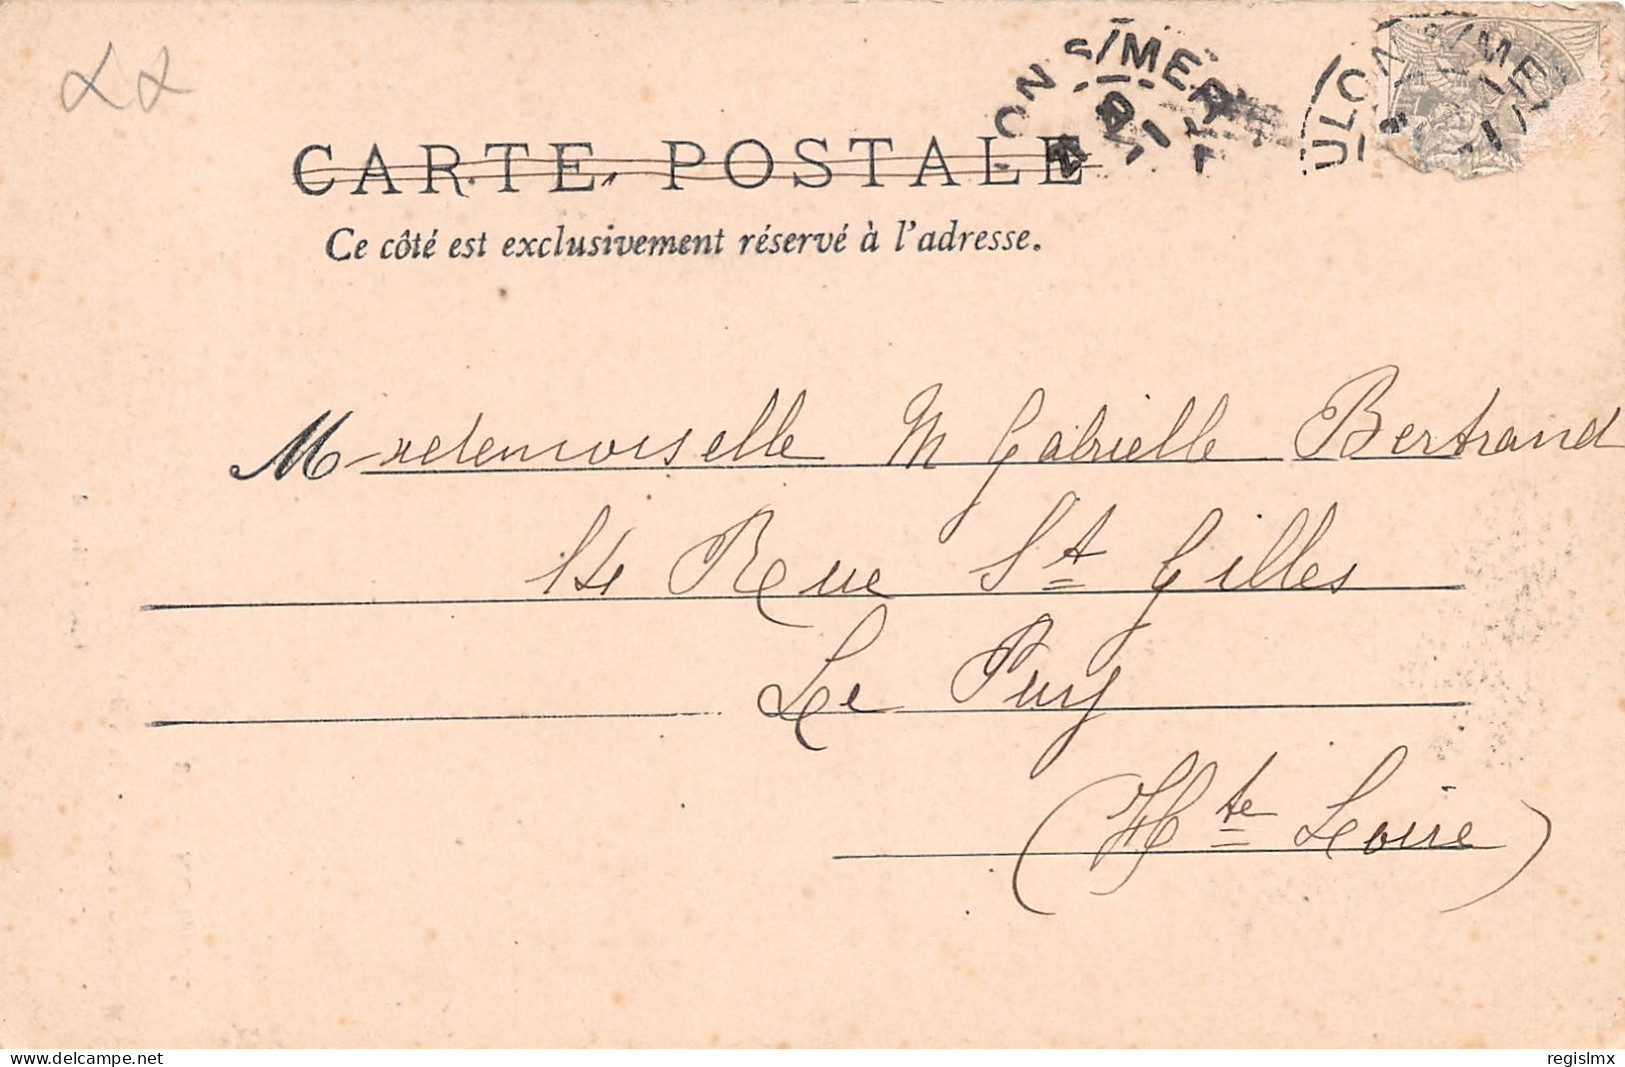 ON S/MER
ULON S/ME
CARTE POSTALE
Ce côté est exclusivement réservé à l'adresse.
Mademoiselle M Gabrielle Bertrand
14 Rue St Gilles
Le Puy
(Hte Loire)
delcampe.net
regislmx